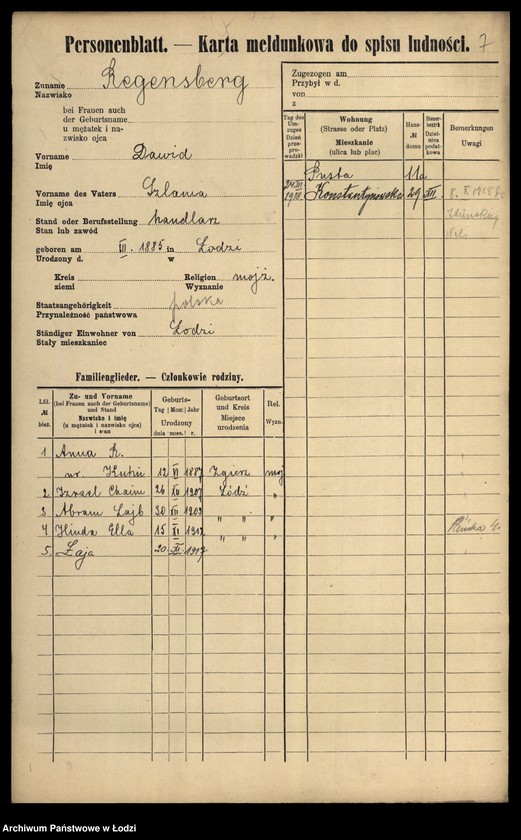 Personenblatt. — Karta meldunkowa do spisu ludności. 7
Zuname Regensberg
Nazwisko
bei Frauen auch
der Geburtsname
u mężatek i na-
zwisko ojca
Vorname Dawid
Imię
Vorname des Vaters Szlama
Imię ojca
Stand oder Berufsstellung handlarz
Stan lub zawód
geboren am III. 1885 in Łodzi
Urodzony d. w
Kreis Religion mojż.
ziemi Wyznanie
Staatsangehörigkeit polska
Przynależność państwowa
Ständiger Einwohner von Łodzi
Stały mieszkaniec
Zugezogen am
Przybył w d.
von
z
Tag des Umzuges
Dzień przeprowadzki
Wohnung
(Strasse oder Platz)
Mieszkanie
(ulica lub plac)
Haus-
№
domu
Steuer-
bezirk
Dzielnica podatkowa
Bemerkungen
Uwagi
Pusta 11a
Konstantynowska 29 III.
Familienglieder. — Członkowie rodziny.
Lfd.
№
bież.
Zu- und Vorname
(bei Frauen auch der Geburtsname)
und Stand
Nazwisko i imię
(u mężatek i nazwisko ojca)
i stan
Geburts-
Tag Mon Jahr
Urodzony
dnia mies. r.
Geburtsort
und Kreis
Miejsce
urodzenia
Rel.
Wyzn.
1 Anna R.
12 VI 1887 Zgierz moj
2. Izrael Chaim 26 XII 1907 Łódź "
3 Abram Lajb 30 XII 1909 " " "
4 Hinda Ella 15 XI 1912 " " "
5. Łaja 20 XI 1917
Archiwum Państwowe w Łodzi